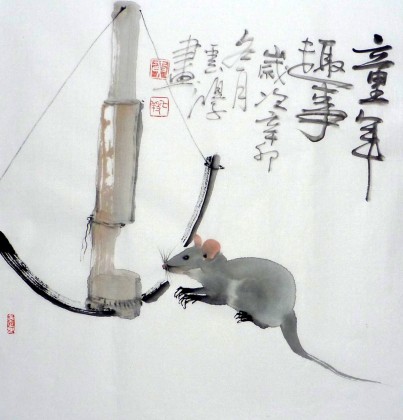 童年
趣事
歲次辛卯
冬月
雲鴻
畫